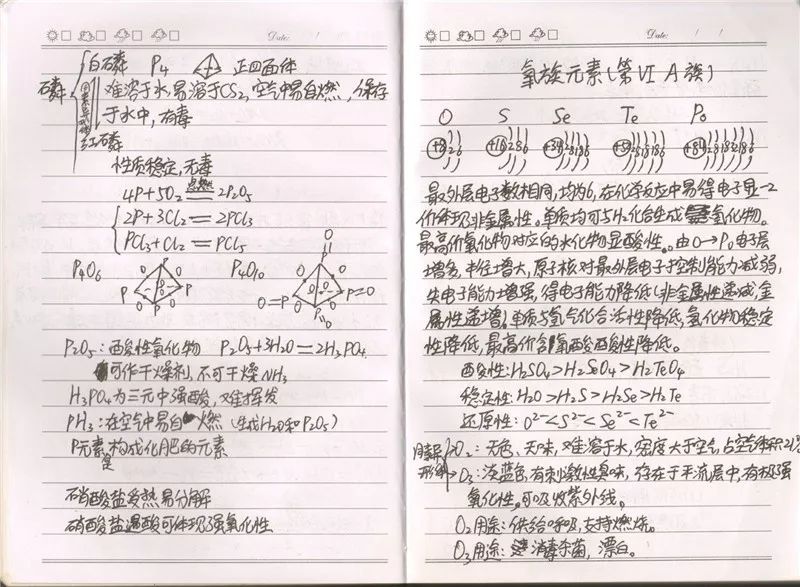 Date: / /
磷
白磷 P₄ 正四面体
难溶于水,易溶于CS₂,空气中易自燃,保存
于水中,有毒
同素异形体
红磷
性质稳定,无毒
4P+5O₂ 点燃 2P₂O₅
2P+3Cl₂=2PCl₃
PCl₃+Cl₂=PCl₅
P₄O₆ P₄O₁₀
P₂O₅:酸性氧化物 P₂O₅+3H₂O=2H₃PO₄
可作干燥剂,不可干燥NH₃
H₃PO₄为三元中强酸,难挥发
PH₃:在空气中易自燃(生成H₂O和P₂O₅)
P元素是构成化肥的元素
硝酸盐受热易分解
硝酸盐遇酸可体现强氧化性
Date: / /
氧族元素(第VIA族)
O S Se Te Po
+8 2 6 +16 2 8 6 +34 2 8 18 6 +52 2 8 18 18 6 +84
最外层电子数相同,均为6,在化学反应中易得电子显-2
价体现非金属性。单质均可与H₂化合生成氢化物。
最高价氧化物对应的水化物显酸性。由O→Po电子层
增多,半径增大,原子核对最外层电子控制能力减弱,
失电子能力增强,得电子能力降低(非金属性递减,金
属性递增)单质与氢气化合活性降低,氢化物稳定
性降低,最高价含氧酸酸性降低。
酸性:H₂SO₄>H₂SeO₄>H₂TeO₄
稳定性:H₂O>H₂S>H₂Se>H₂Te
还原性:O²⁻<S²⁻<Se²⁻<Te²⁻
同素异形体
O₂:无色、无味,难溶于水,密度大于空气,占空气体积21%
O₃:淡蓝色,有刺激性臭味,存在于平流层中,有极强
氧化性,可吸收紫外线。
O₂用途:供给呼吸,支持燃烧。
O₃用途:消毒杀菌,漂白。